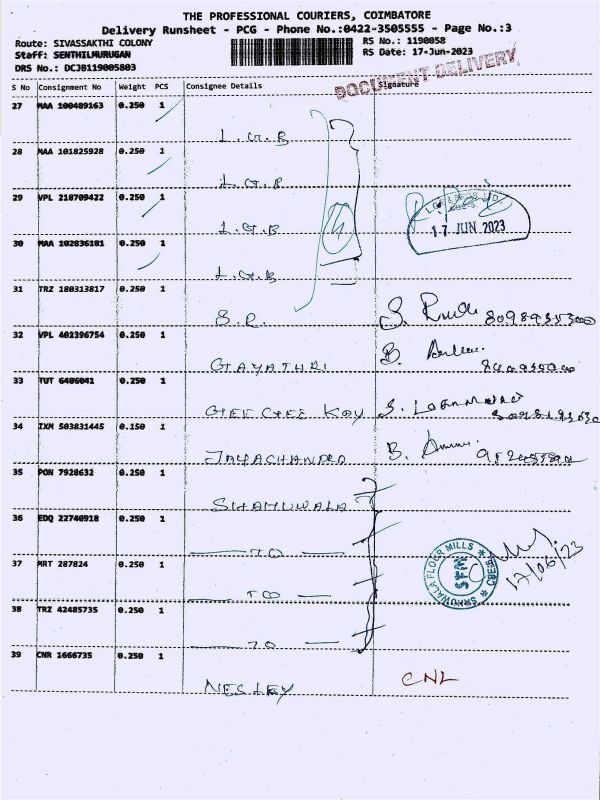 THE PROFESSIONAL COURIERS, COIMBATORE
Delivery Runsheet - PCG - Phone No.:0422-3505555 - Page No.:3
Route: SIVASSAKTHI COLONY RS No.: 1190058
Staff: SENTHILMURUGAN RS Date: 17-Jun-2023
DRS No.: DCJB119005803
DOCUMENT DELIVERY
S No Consignment No Weight PCS Consignee Details Signature
27 MAA 100489163 0.250 1
L.G.B
28 MAA 101825928 0.250 1
L.G.B
29 VPL 218709422 0.250 1
L.G.B
17 JUN 2023
30 MAA 102836181 0.250 1
L.G.B
4
31 TRZ 180313817 0.250 1
S.R.
32 VPL 402396754 0.250 1
GAYATHRI B.
33 TUT 6486041 0.250 1
GEE GEE KAY S.
34 IXM 503831445 0.150 1
JAYACHANDRA B.
35 PON 7928632 0.250 1
SHAHUWALA
36 EDQ 22740918 0.250 1
— TO —
37 MRT 287824 0.250 1
— TO —
SAHUWALA FLOUR MILLS
SFM
CBE
17/06/23
38 TRZ 42485735 0.250 1
— TO —
39 CNR 1666735 0.250 1
NESLEY CNL